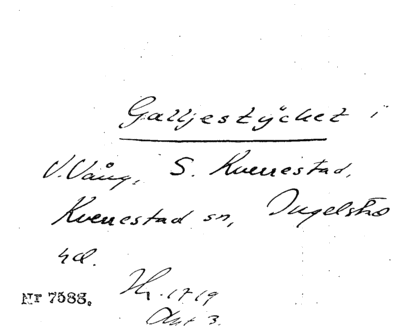 Galljestycket i
V. Vång, S. Kverrestad,
Kverrestad sn, Ingelstad
hd.
Nr 7588. Hr. 1719
Akt 3.